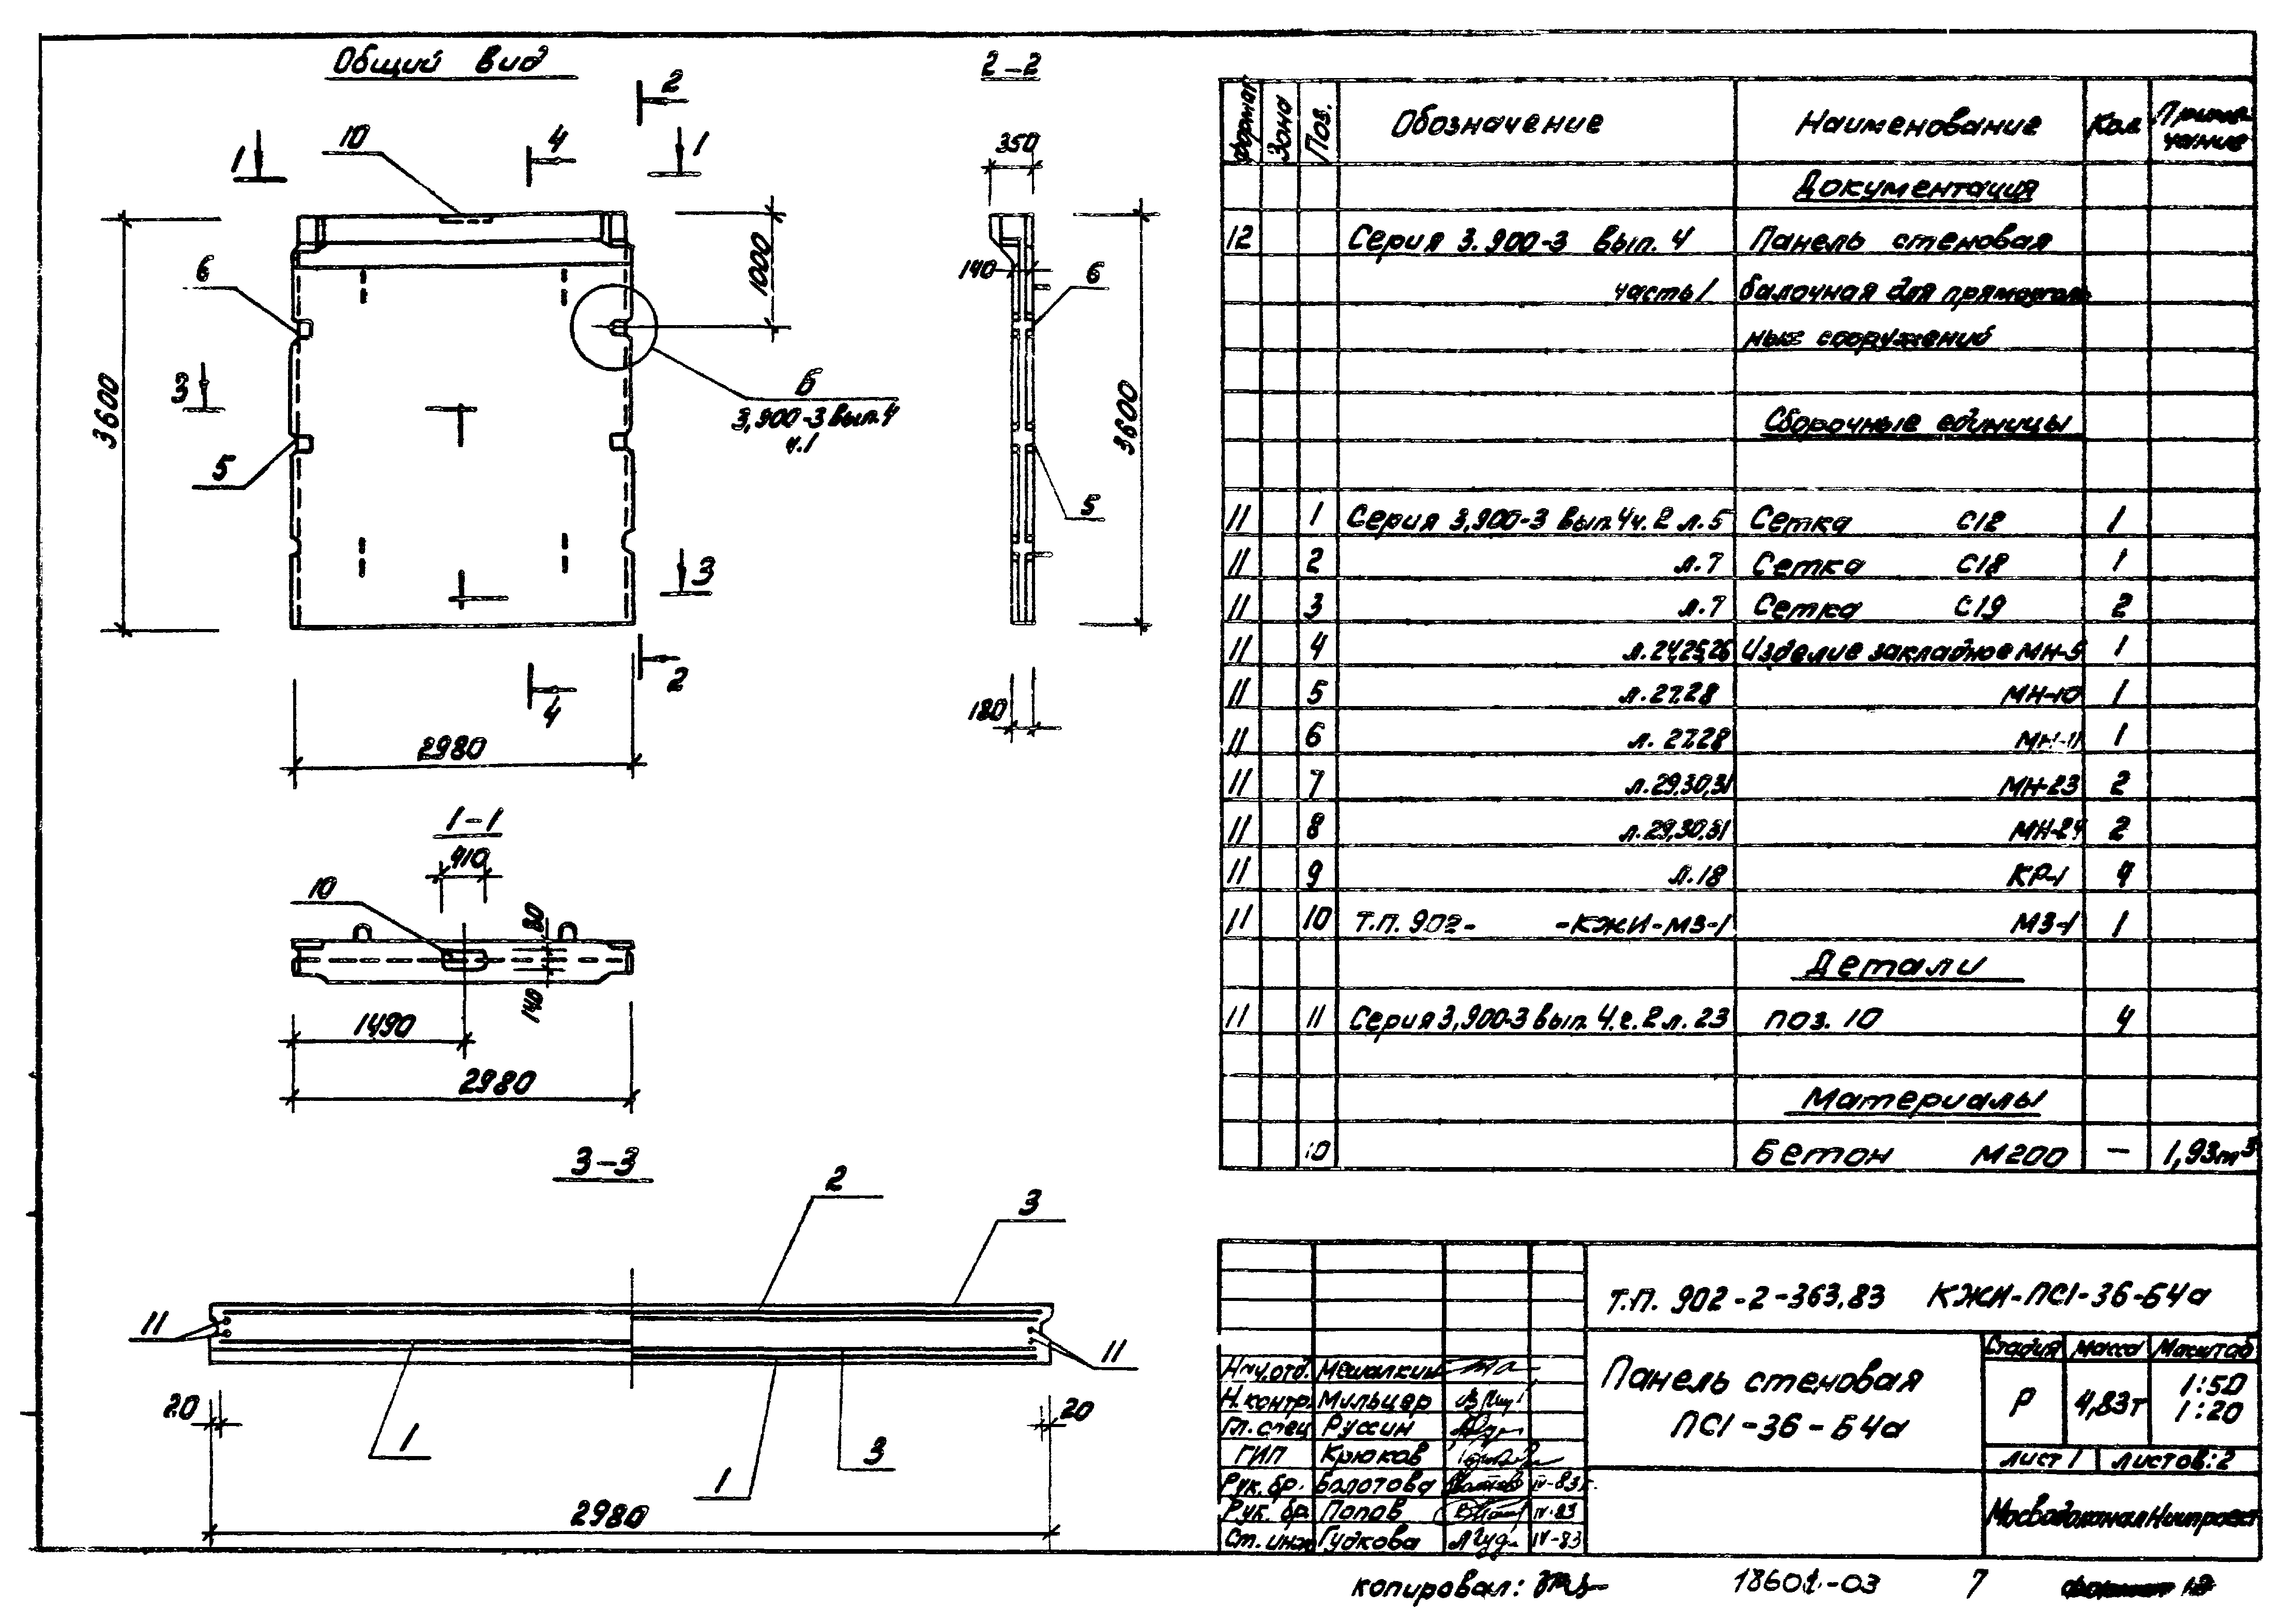 Общий вид
2-2
2
10
4
1
1
350
6
1000
140
6
3
Б
3600
3600
3,900-3 вып. 4
ч.1
5
5
3
2
4
180
2980
1-1
410
10
80
140
1490
2980
3-3
2
3
11
11
20
20
1
3
1
2980
Формат Зона Поз. Обозначение Наименование Кол Примечание
Документация
12 Серия 3.900-3 вып. 4 Панель стеновая
часть 1 балочная для прямоуголь
ных сооружений
Сборочные единицы
11 1 Серия 3,900-3 вып. 4 ч. 2 л. 5 Сетка С12 1
11 2 л. 7 Сетка С18 1
11 3 л. 7 Сетка С19 2
11 4 л. 24,25,26 Изделие закладное МН-5 1
11 5 л. 27,28 МН-10 1
11 6 л. 27,28 МН-11 1
11 7 л. 29,30,31 МН-23 2
11 8 л. 29,30,31 МН-24 2
11 9 л. 18 КР-1 4
11 10 Т.П. 902- -КЖИ-МЗ-1 МЗ-1 1
Детали
11 11 Серия 3,900-3 вып. 4.ч. 2 л. 23 поз. 10 4
Материалы
10 Бетон М200 — 1,93m³
Т.П. 902-2-363,83 КЖИ-ПС1-36-Б4а
Панель стеновая
ПС1-36-Б4а
Стадия Масса Масштаб
Р 4,83т 1:50
1:20
Лист 1 Листов: 2
МосводоканалНиипроект
Нач.отд. Мешалкин
Н.контр. Мильцер
Гл.спец Руссин
ГИП Крюков
Рук.бр. Болотова IV-83г.
Рук. бр. Попов IV-83
Ст. инж Гудкова IV-83
копировал:
18601-03 7 формат 12